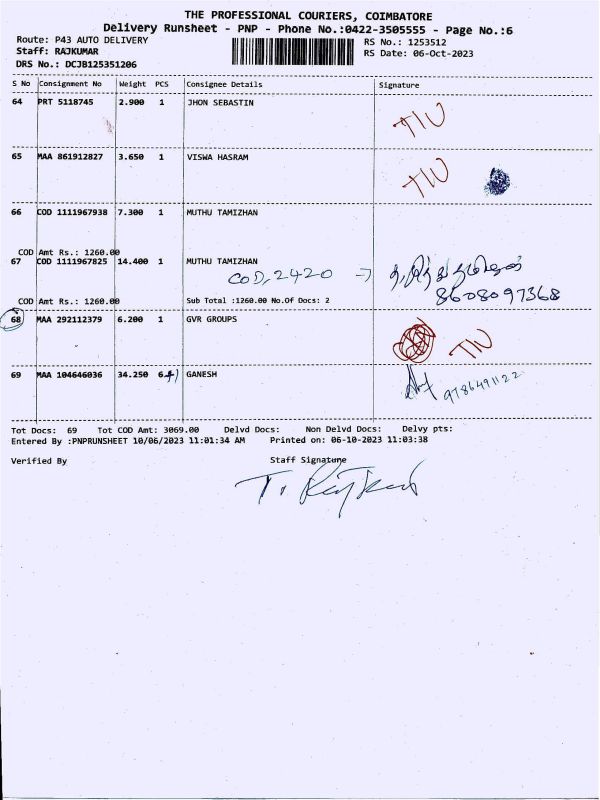 THE PROFESSIONAL COURIERS, COIMBATORE
Delivery Runsheet - PNP - Phone No.:0422-3505555 - Page No.:6
Route: P43 AUTO DELIVERY
RS No.: 1253512
Staff: RAJKUMAR
RS Date: 06-Oct-2023
DRS No.: DCJB125351206
S No Consignment No Weight PCS Consignee Details Signature
64 PRT 5118745 2.900 1 JHON SEBASTIN
TIU
65 MAA 861912827 3.650 1 VISWA HASRAM
TIU
66 COD 1111967938 7.300 1 MUTHU TAMIZHAN
COD Amt Rs.: 1260.00
67 COD 1111967825 14.400 1 MUTHU TAMIZHAN
COD, 2420 →
8608097368
COD Amt Rs.: 1260.00 Sub Total :1260.00 No.Of Docs: 2
68 MAA 292112379 6.200 1 GVR GROUPS
TIU
69 MAA 104646036 34.250 GANESH
9786491122
Tot Docs: 69 Tot COD Amt: 3069.00 Delvd Docs: Non Delvd Docs: Delvy pts:
Entered By :PNPRUNSHEET 10/06/2023 11:01:34 AM Printed on: 06-10-2023 11:03:38
Verified By Staff Signature